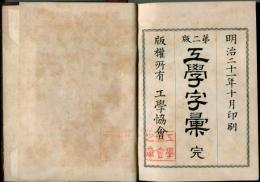 明治二十一年十月印刷
第二版
工學字彙 完
版權所有 工學協會